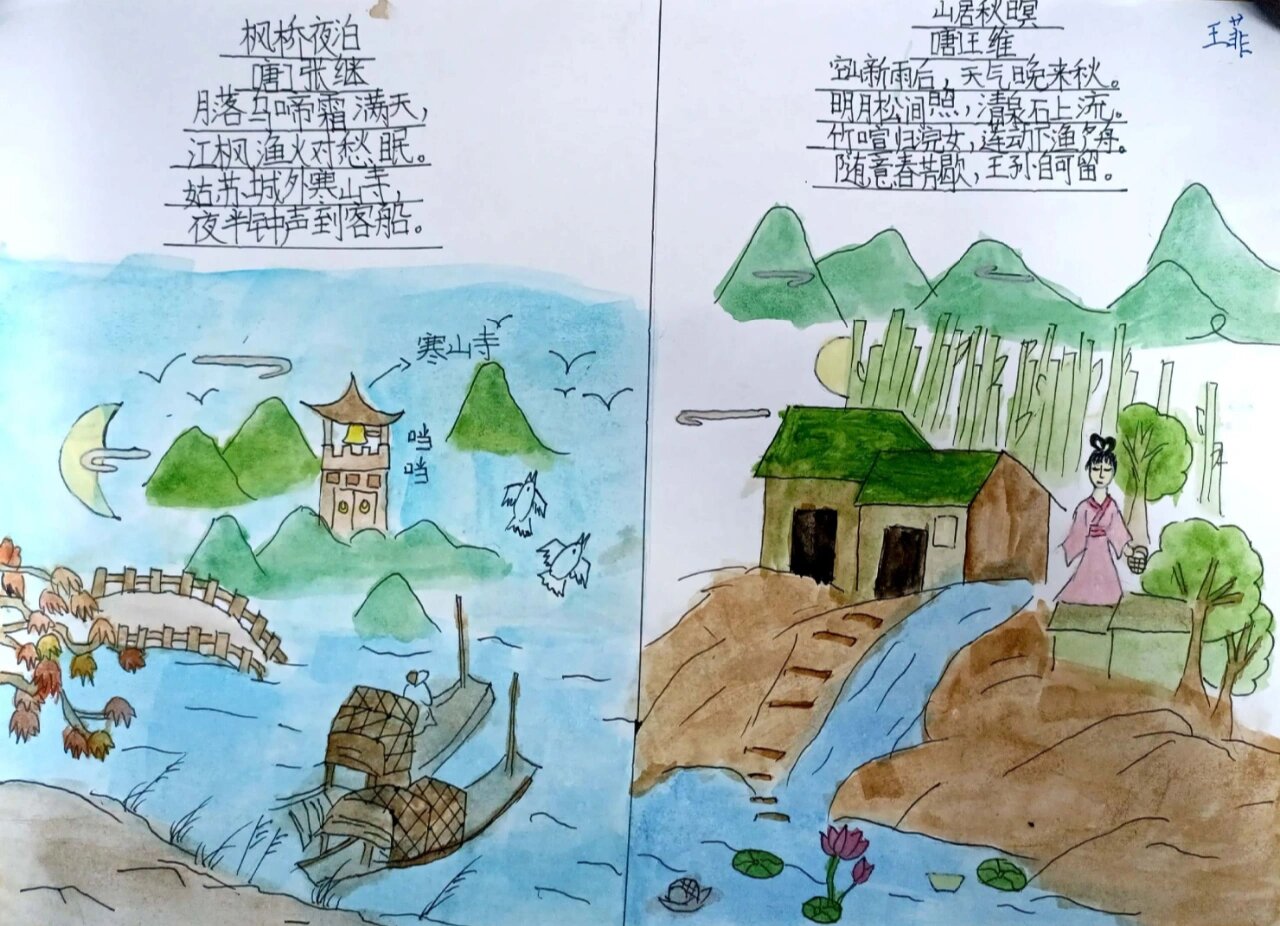 枫桥夜泊
[唐]张继
月落乌啼霜满天，
江枫渔火对愁眠。
姑苏城外寒山寺，
夜半钟声到客船。
寒山寺
当
当
山居秋暝
唐王维
空山新雨后，天气晚来秋。
明月松间照，清泉石上流。
竹喧归浣女，莲动下渔舟。
随意春芳歇，王孙自可留。
王菲